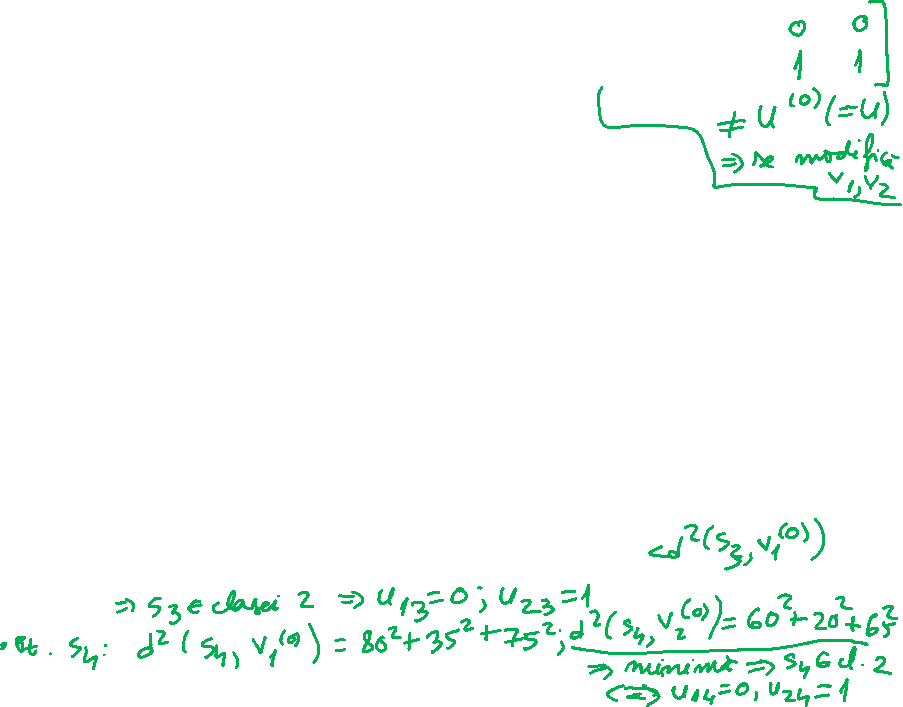 0 0 ]
1 1
≠ U^(0) (=U)
⇒ se modifică
v_1, v_2
<d^2(s_3, v_1^(0))
⇒ s_3 ∈ clasei 2 ⇒ u_13=0; u_23=1
pt. s_4: d^2(s_4, v_1^(0)) = 80^2+35^2+75^2; d^2(s_4, v_2^(0))=60^2+20^2+65^2
⇒ minimă ⇒ s_4 ∈ cl. 2
(⇒) u_14=0, u_24=1